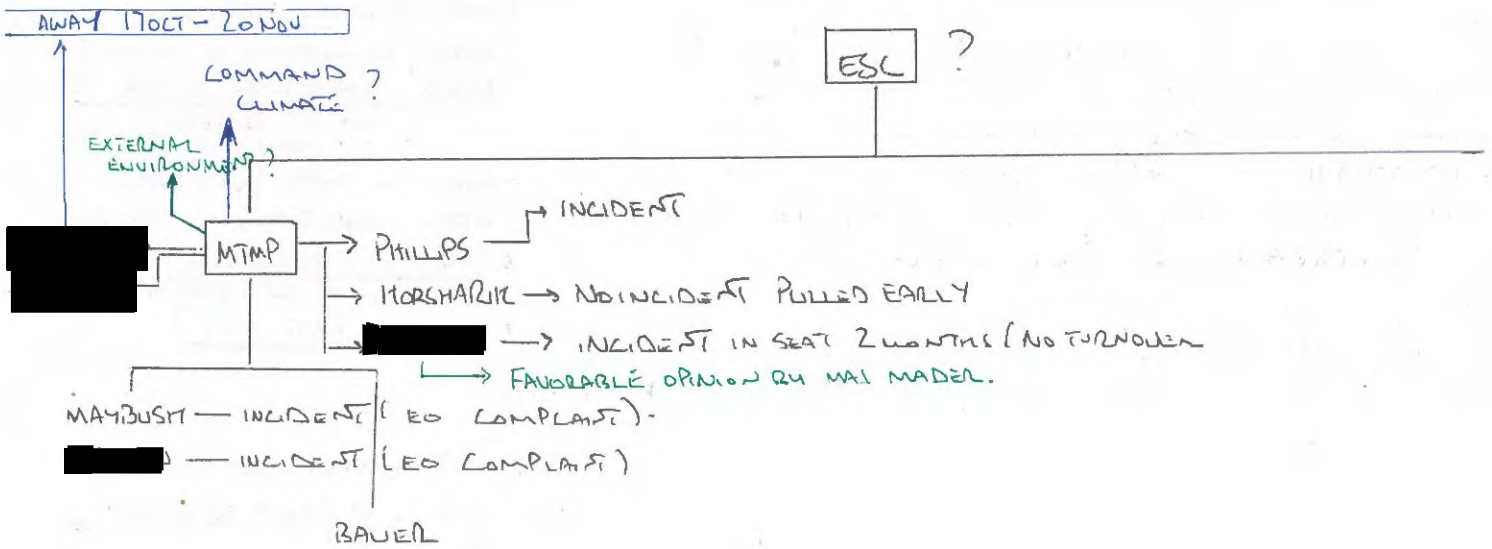 AWAY 17OCT - 20NOV
ESC ?
COMMAND ?
CLIMATE
EXTERNAL
ENVIRONMENT?
INCIDENT
MTMP PHILLIPS
HORSHARIK NO INCIDENT PULLED EARLY
INCIDENT IN SEAT 2 MONTHS / NO TURNOVER
FAVORABLE OPINION BY MAJ MADER.
MAYBUSH - INCIDENT (EO COMPLAINT).
- INCIDENT (EO COMPLAINT)
BAUER